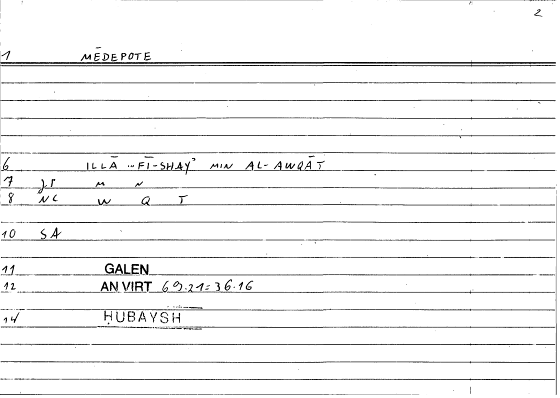 2
1 MĒDEPOTE
6 ILLĀ ... FĪ-SHAYʾ MIN AL-AWQĀT
7 M N
8 NC W Q T
10 SA
11 GALEN
12 AN VIRT 69.21=36.16
14 ḤUBAYSH